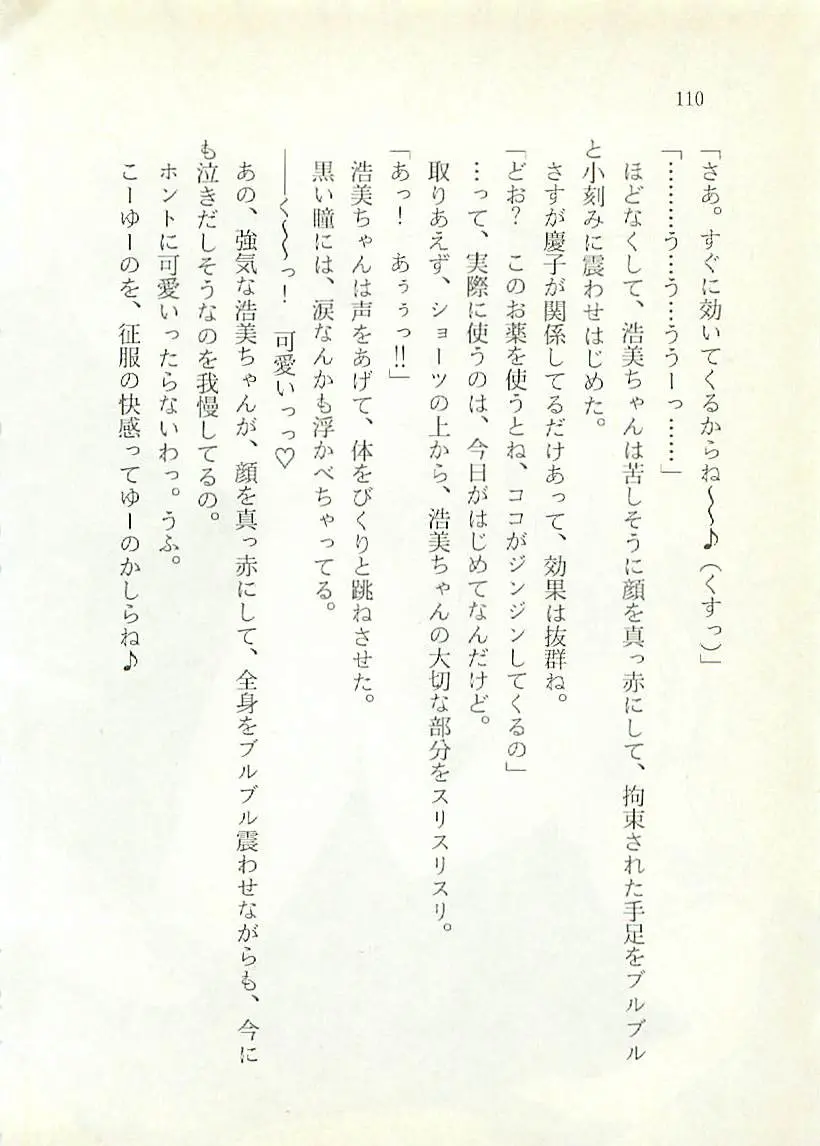 110
「さあ。すぐに効いてくるからね～～♪（くすっ）」
「………う…う…ううーっ……」
ほどなくして、浩美ちゃんは苦しそうに顔を真っ赤にして、拘束された手足をブルブル
と小刻みに震わせはじめた。
さすが慶子が関係してるだけあって、効果は抜群ね。
「どお？　このお薬を使うとね、ココがジンジンしてくるの」
…って、実際に使うのは、今日がはじめてなんだけど。
取りあえず、ショーツの上から、浩美ちゃんの大切な部分をスリスリスリ。
「あっ！　あぅぅっ!!」
浩美ちゃんは声をあげて、体をびくりと跳ねさせた。
黒い瞳には、涙なんかも浮かべちゃってる。
――く～～っ！　可愛いっっ♡
あの、強気な浩美ちゃんが、顔を真っ赤にして、全身をブルブル震わせながらも、今に
も泣きだしそうなのを我慢してるの。
ホントに可愛いったらないわっ。うふ。
こーゆーのを、征服の快感ってゆーのかしらね♪